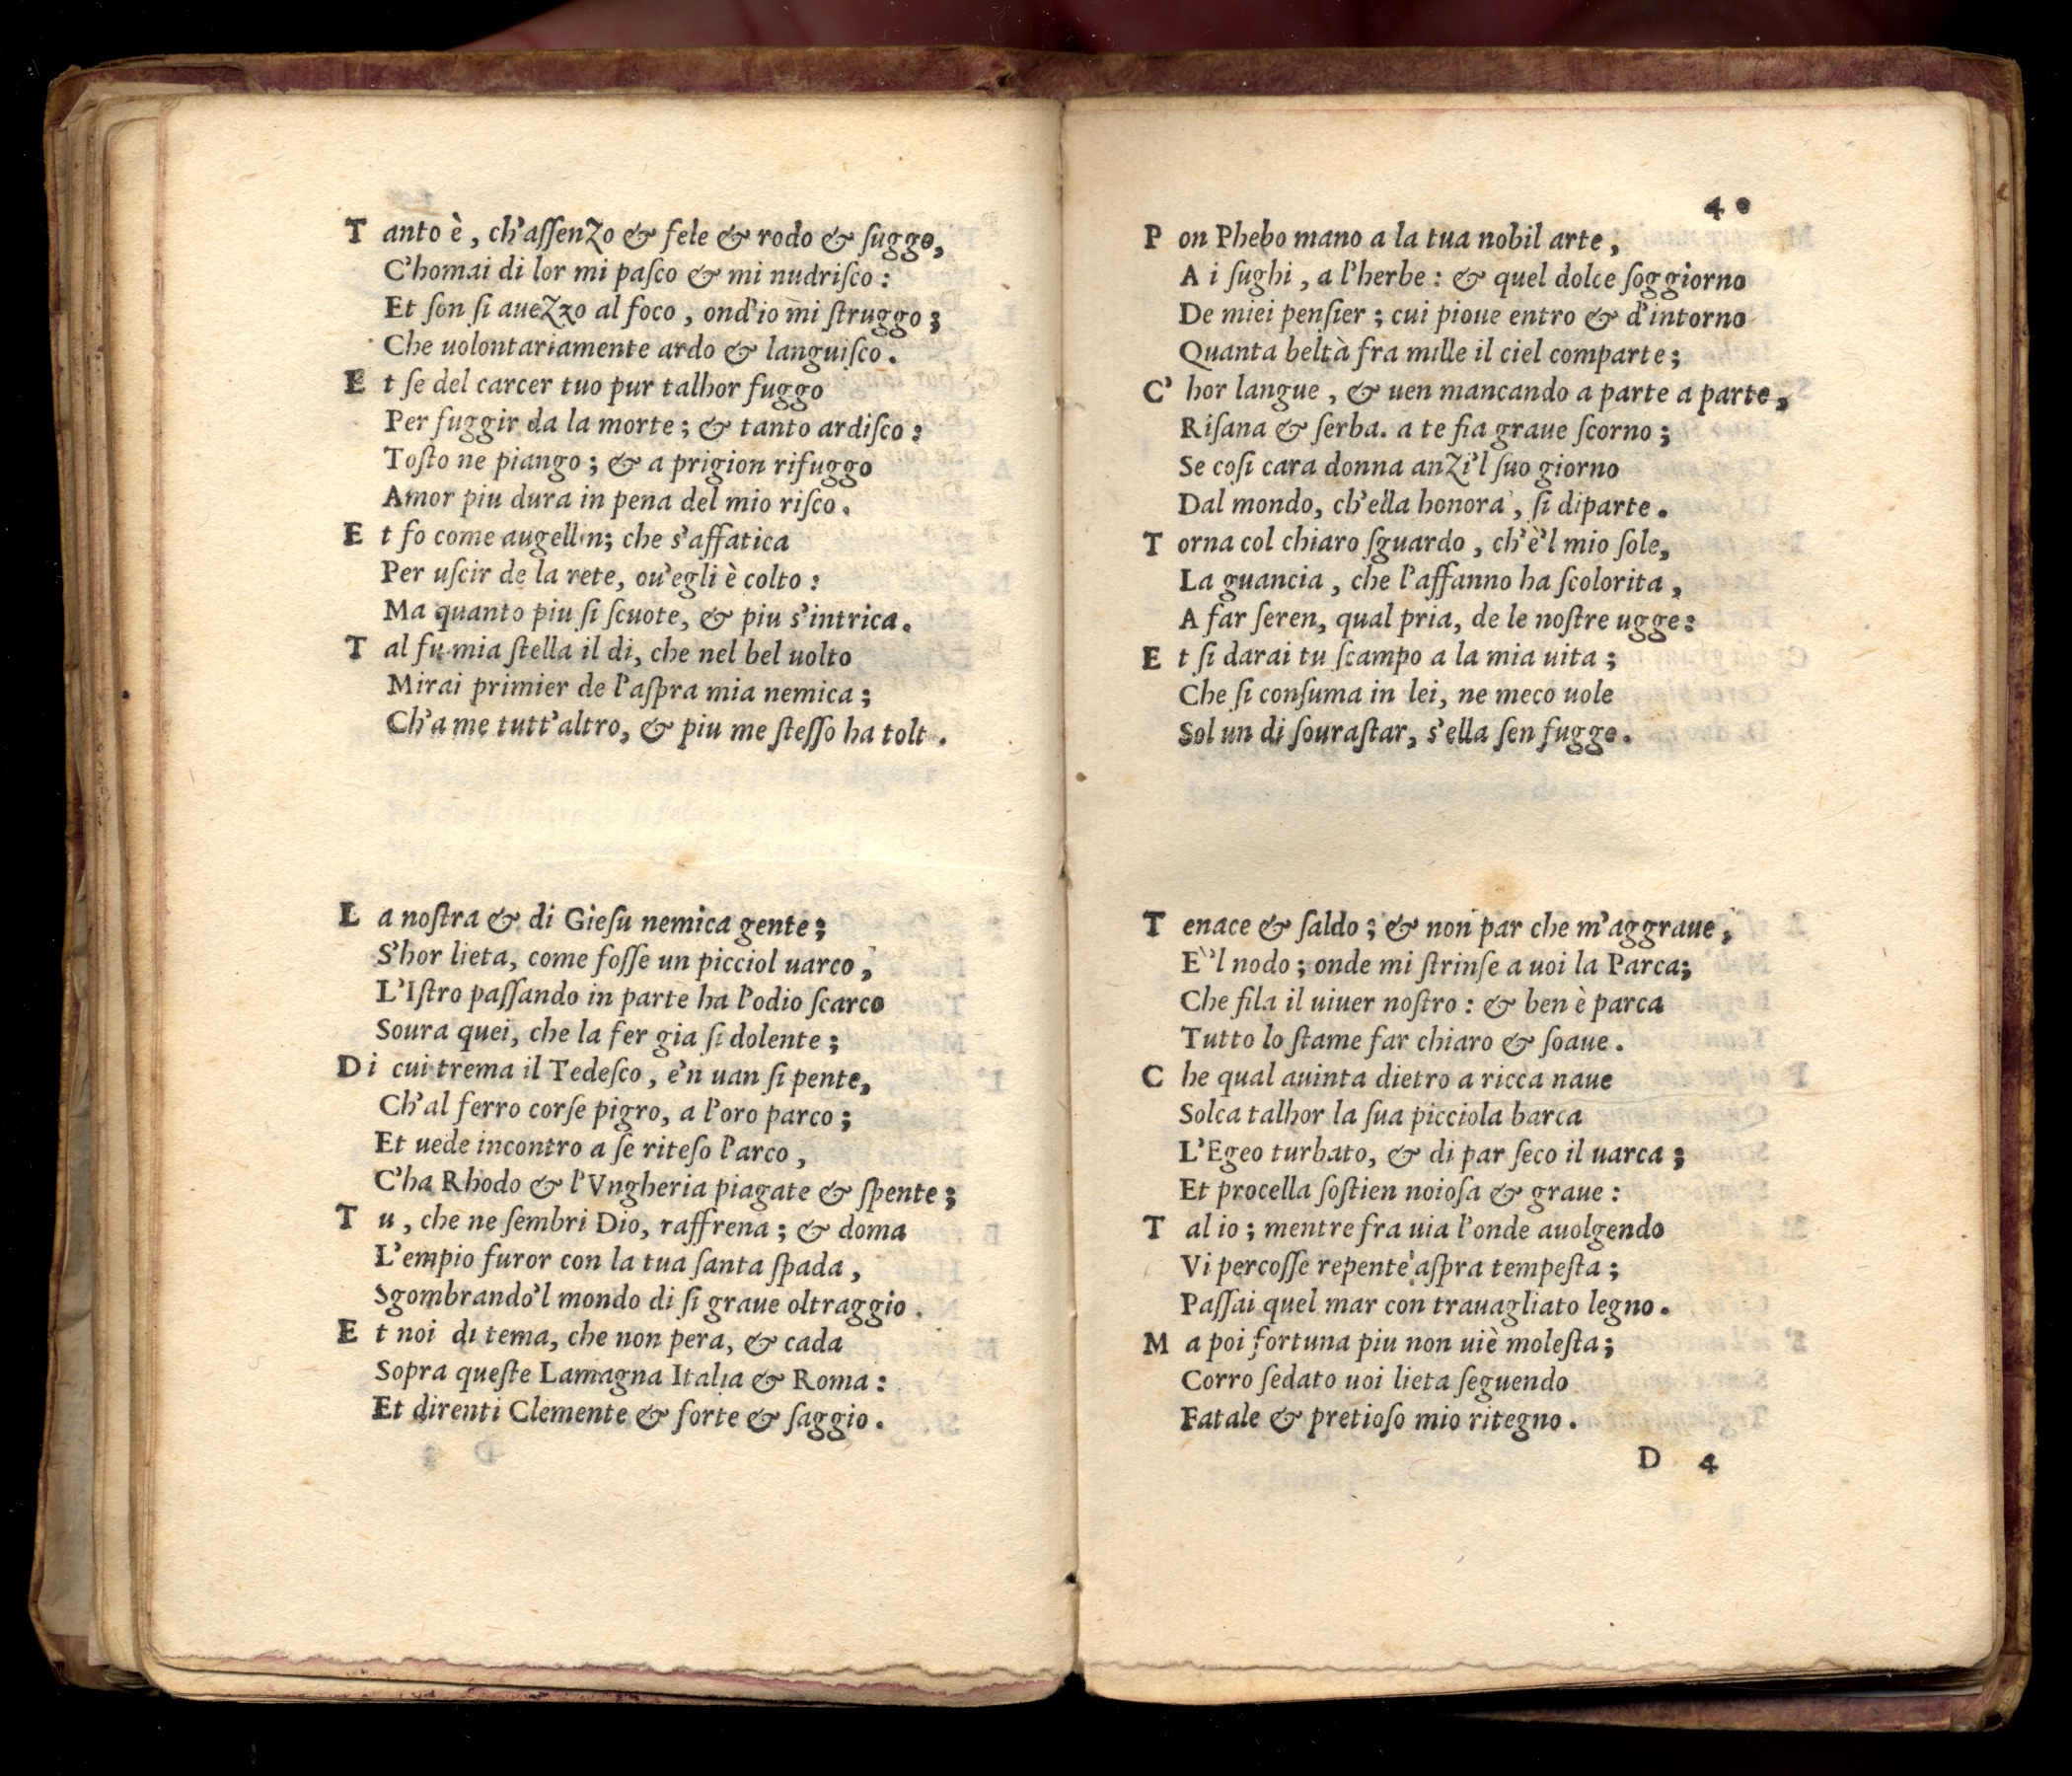 Tanto è, ch'aſſenzo & fele & rodo & ſuggo,
C'homai di lor mi paſco & mi nudriſco:
Et ſon ſi auezzo al foco, ond'io mi ſtruggo;
Che uolontariamente ardo & languiſco.
Et ſe del carcer tuo pur talhor fuggo
Per fuggir da la morte; & tanto ardiſco:
Toſto ne piango; & a prigion rifuggo
Amor piu dura in pena del mio riſco.
Et fo come augellin; che s'affatica
Per uſcir de la rete, ou'egli è colto:
Ma quanto piu ſi ſcuote, & piu s'intrica.
Tal fu mia ſtella il di, che nel bel uolto
Mirai primier de l'aſpra mia nemica;
Ch'a me tutt'altro, & piu me ſteſſo ha tolt.
La noſtra & di Gieſu nemica gente;
S'hor lieta, come foſſe un picciol uarco,
L'Iſtro paſſando in parte ha l'odio ſcarco
Soura quei, che la fer gia ſi dolente;
Di cui trema il Tedeſco, e'n uan ſi pente,
Ch'al ferro corſe pigro, a l'oro parco;
Et uede incontro a ſe riteſo l'arco,
C'ha Rhodo & l'Vngheria piagate & ſpente;
Tu, che ne ſembri Dio, raffrena; & doma
L'empio furor con la tua ſanta ſpada,
Sgombrando'l mondo di ſi graue oltraggio.
Et noi di tema, che non pera, & cada
Sopra queſte Lamagna Italia & Roma:
Et direnti Clemente & forte & ſaggio.
40
Pon Phebo mano a la tua nobil arte,
A i ſughi, a l'herbe: & quel dolce ſoggiorno
De miei penſier; cui pioue entro & d'intorno
Quanta beltà fra mille il ciel comparte;
C'hor langue, & uen mancando a parte a parte,
Riſana & ſerba. a te fia graue ſcorno;
Se coſi cara donna anzi'l ſuo giorno
Dal mondo, ch'ella honora, ſi diparte.
Torna col chiaro ſguardo, ch'è'l mio ſole,
La guancia, che l'affanno ha ſcolorita,
A far ſeren, qual pria, de le noſtre ugge:
Et ſi darai tu ſcampo a la mia uita;
Che ſi conſuma in lei, ne meco uole
Sol un di ſouraſtar, s'ella ſen fugge.
Tenace & ſaldo; & non par che m'aggraue,
E'l nodo; onde mi ſtrinſe a uoi la Parca;
Che fila il uiuer noſtro: & ben è parca
Tutto lo ſtame far chiaro & ſoaue.
Che qual auinta dietro a ricca naue
Solca talhor la ſua picciola barca
L'Egeo turbato, & di par ſeco il uarca;
Et procella ſoſtien noioſa & graue:
Tal io; mentre fra uia l'onde auolgendo
Vi percoſſe repente aſpra tempeſta;
Paſſai quel mar con trauagliato legno.
Ma poi fortuna piu non uiè moleſta;
Corro ſedato uoi lieta ſeguendo
Fatale & pretioſo mio ritegno.
D 4